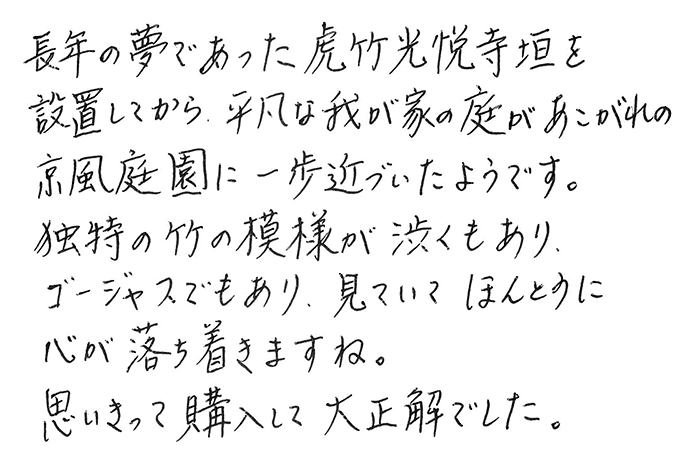 長年の夢であった虎竹光悦寺垣を
設置してから、平凡な我が家の庭があこがれの
京風庭園に一歩近づいたようです。
独特の竹の模様が渋くもあり、
ゴージャスでもあり、見ていてほんとうに
心が落ち着きますね。
思いきって購入して大正解でした。